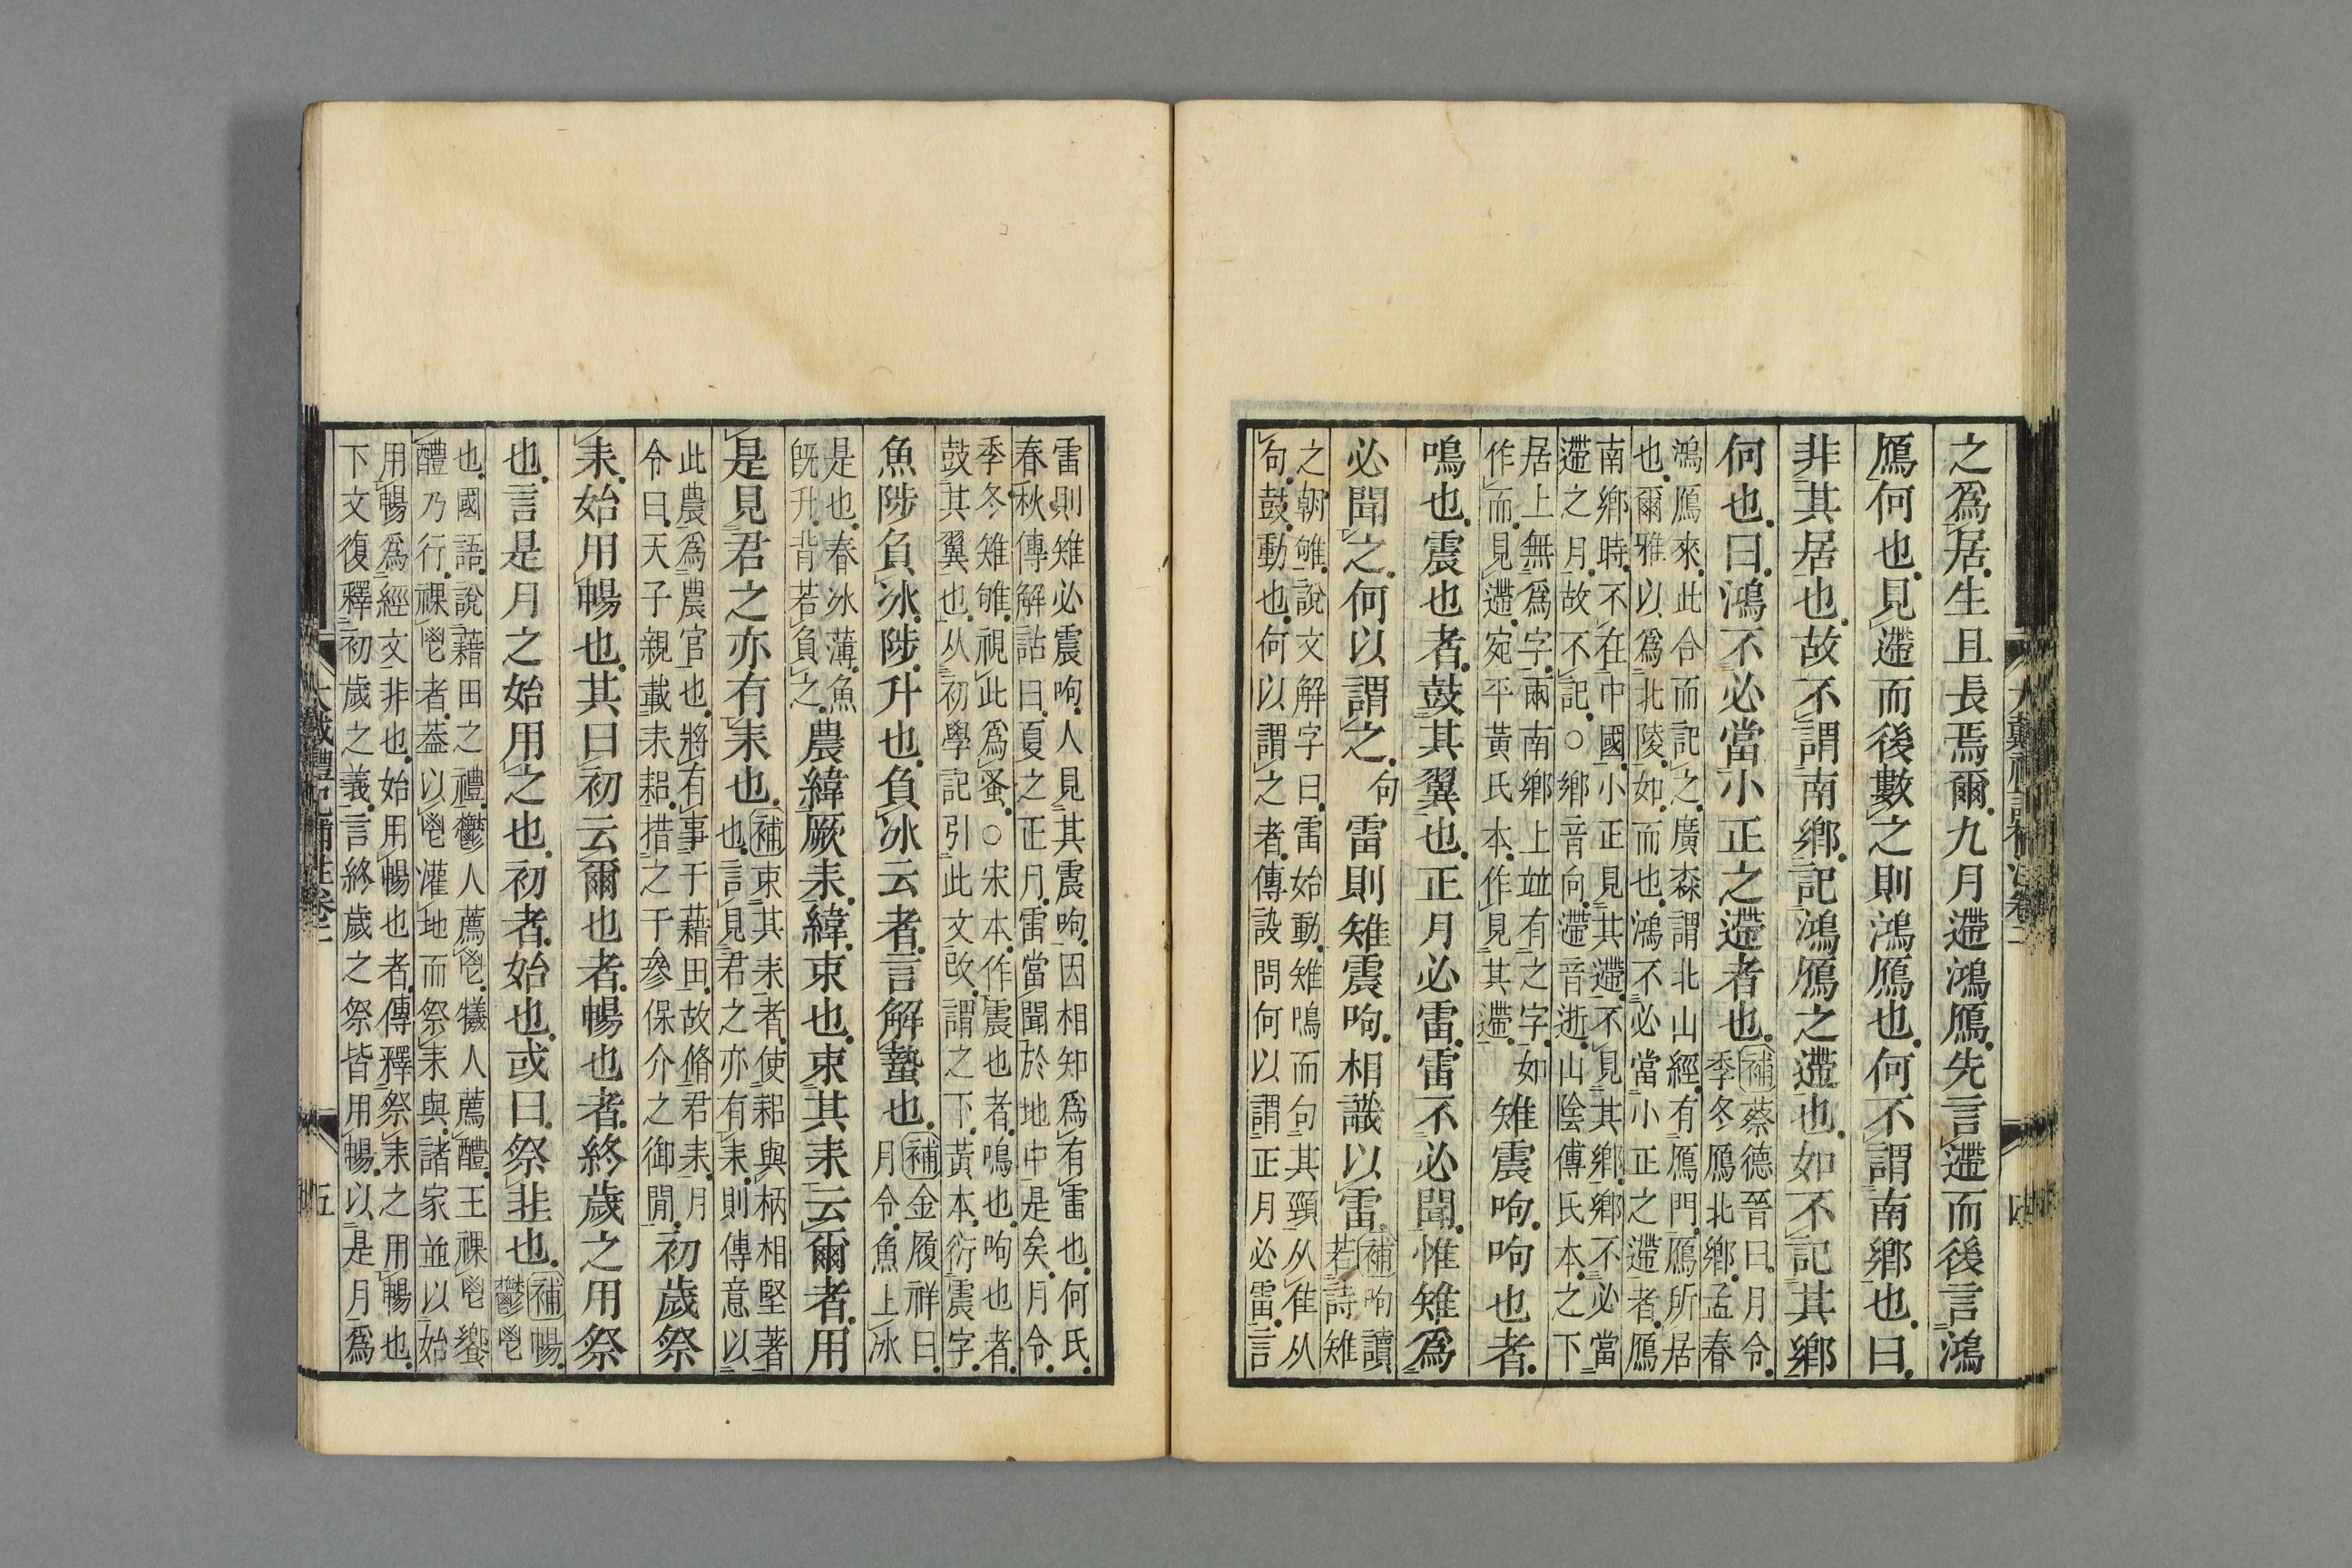 大戴禮記補注卷二
四
之爲居生且長焉爾九月遰鴻鴈先言遰而後言鴻
鴈何也見遰而後數之則鴻鴈也何不謂南鄉也曰
非其居也故不謂南鄉記鴻鴈之遰也如不記其鄉
何也曰鴻不必當小正之遰者也
補蔡德晉曰月令
季冬鴈北鄉孟春
鴻鴈來此合而記之廣森謂北山經有鴈門鴈所居
也爾雅以爲北陵如而也鴻不必當小正之遰者鴈
南鄉時不在中國小正見其遰不見其鄉鄉不必當
遰之月故不記○鄉音向遰音逝山陰傅氏本之下
居上無爲字兩南鄉上並有之字如
作而見遰宛平黃氏本作見其遰
雉震呴呴也者
鳴也震也者鼓其翼也正月必雷雷不必聞惟雉爲
必聞之何以謂之句雷則雉震呴相識以雷
補呴讀
若詩雉
之朝雊說文解字曰雷始動雉鳴而句其頸从隹从
句鼓動也何以謂之者傳設問何以謂正月必雷言
雷則雉必震呴人見其震呴因相知爲有雷也何氏
春秋傳解詁曰夏之正月雷當聞於地中是矣月令
季冬雉雊視此爲蚤○宋本作震也者鳴也呴也者
鼓其翼也从初學記引此文改謂之下黃本衍震字
魚陟負冰陟升也負冰云者言解蟄也
補金履祥曰
月令魚上冰
是也春冰薄魚
旣升背若負之
農緯厥耒緯束也束其耒云爾者用
是見君之亦有耒也
補束其耒者使耜與柄相堅著
也言見君之亦有耒則傳意以
此農爲農官也將有事于藉田故脩君耒月
令曰天子親載耒耜措之于參保介之御閒
初歲祭
耒始用暢也其曰初云爾也者暢也者終歲之用祭
也言是月之始用之也初者始也或曰祭韭也
補暢
鬱鬯
也國語說藉田之禮鬱人薦鬯犧人薦醴王祼鬯饗
醴乃行祼鬯者葢以鬯灌地而祭耒與諸家並以始
用暢爲經文非也始用暢也者傳釋祭耒之用暢也
下文復釋初歲之義言終歲之祭皆用暢以是月爲
大戴禮記補注卷二
五